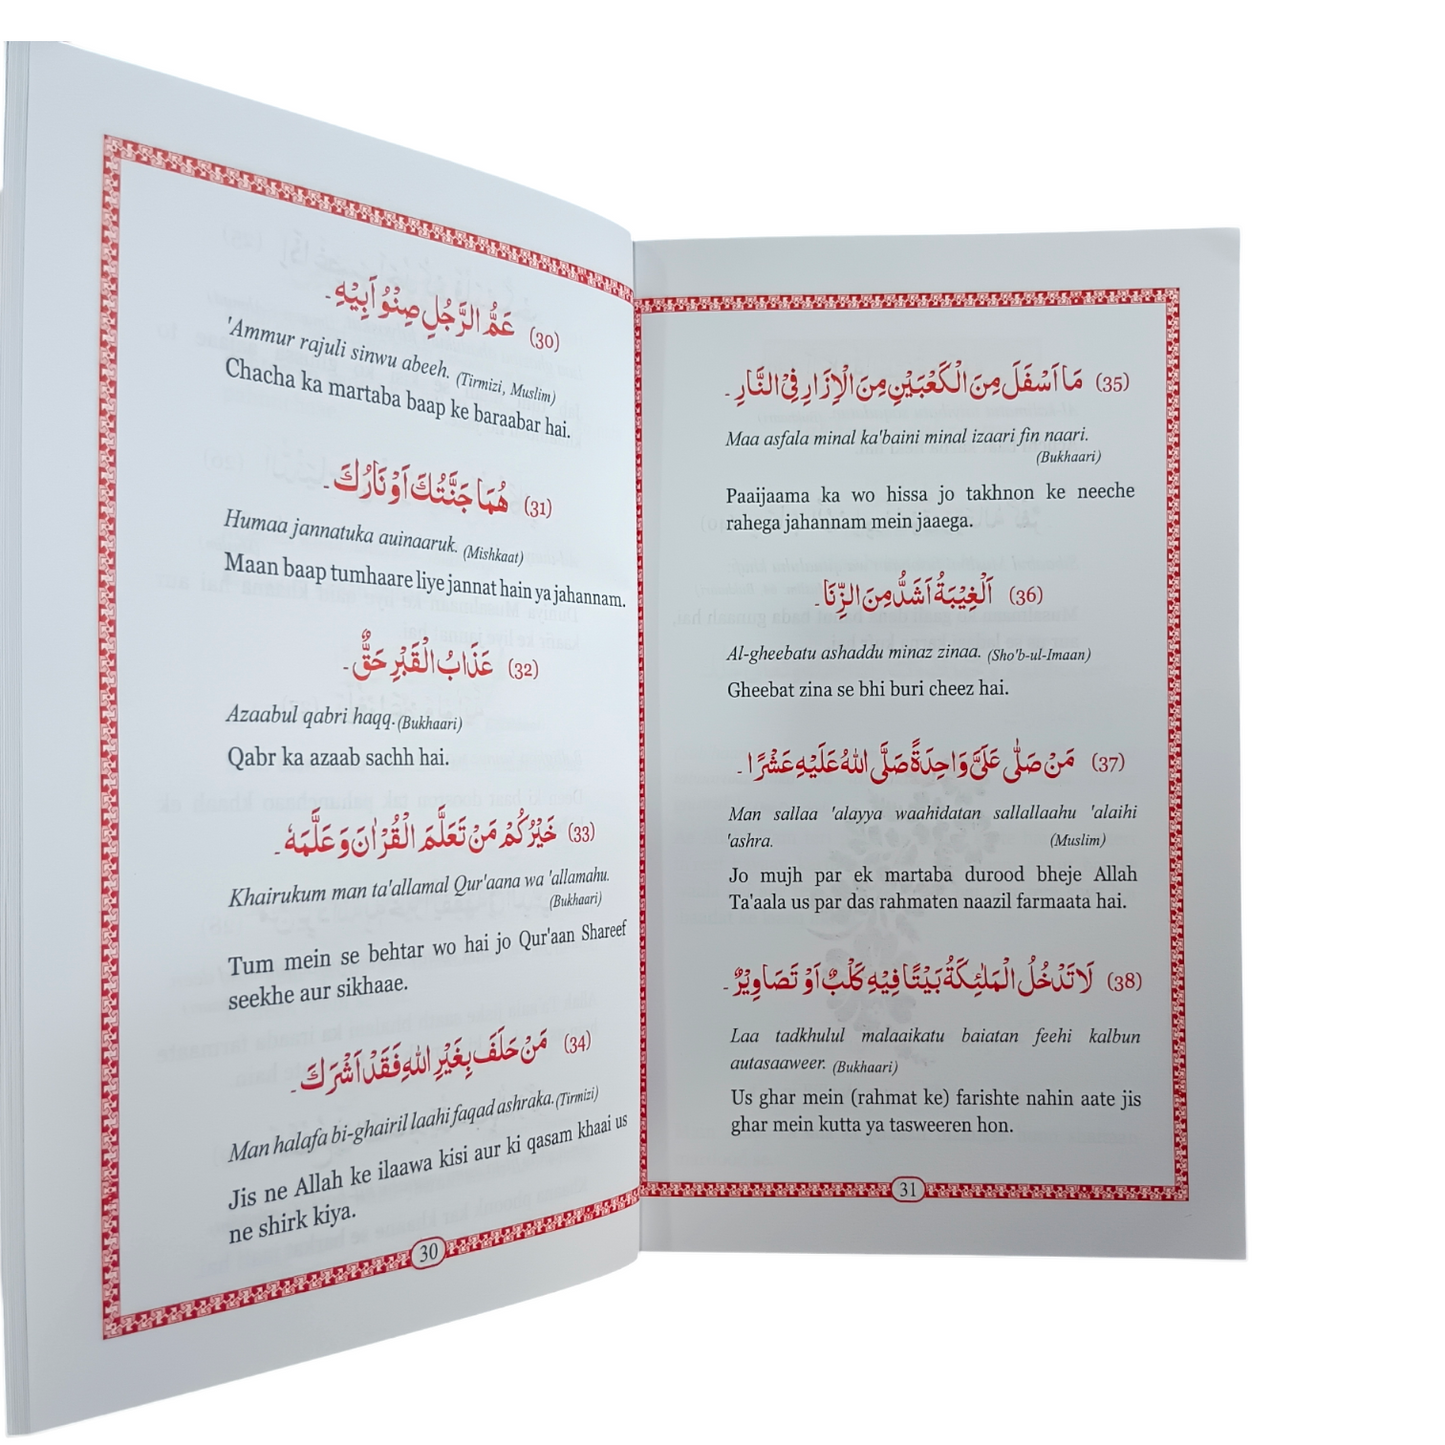 (30) عَمُّ الرَّجُلِ صِنْوُ اَبِيْهِ۔
'Ammur rajuli sinwu abeeh. (Tirmizi, Muslim)
Chacha ka martaba baap ke baraabar hai.
(31) هُمَا جَنَّتُكَ اَوْ نَارُكَ۔
Humaa jannatuka auinaaruk. (Mishkaat)
Maan baap tumhaare liye jannat hain ya jahannam.
(32) عَذَابُ الْقَبْرِ حَقٌّ۔
Azaabul qabri haqq. (Bukhaari)
Qabr ka azaab sachh hai.
(33) خَيْرُكُمْ مَنْ تَعَلَّمَ الْقُرْاٰنَ وَ عَلَّمَهٗ۔
Khairukum man ta'allamal Qur'aana wa 'allamahu.
(Bukhaari)
Tum mein se behtar wo hai jo Qur'aan Shareef
seekhe aur sikhaae.
(34) مَنْ حَلَفَ بِغَيْرِ اللهِ فَقَدْ اَشْرَكَ۔
Man halafa bi-ghairil laahi faqad ashraka. (Tirmizi)
Jis ne Allah ke ilaawa kisi aur ki qasam khaai us
ne shirk kiya.
30
(35) مَا اَسْفَلَ مِنَ الْكَعْبَيْنِ مِنَ الْاِزَارِ فِى النَّارِ۔
Maa asfala minal ka'baini minal izaari fin naari.
(Bukhaari)
Paaijaama ka wo hissa jo takhnon ke neeche
rahega jahannam mein jaaega.
(36) اَلْغِيْبَةُ اَشَدُّ مِنَ الزِّنَا۔
Al-gheebatu ashaddu minaz zinaa. (Sho'b-ul-Imaan)
Gheebat zina se bhi buri cheez hai.
(37) مَنْ صَلّٰى عَلَىَّ وَاحِدَةً صَلَّى اللهُ عَلَيْهِ عَشْرًا۔
Man sallaa 'alayya waahidatan sallallaahu 'alaihi
'ashra. (Muslim)
Jo mujh par ek martaba durood bheje Allah
Ta'aala us par das rahmaten naazil farmaata hai.
(38) لَا تَدْخُلُ الْمَلٰئِكَةُ بَيْتًا فِيْهِ كَلْبٌ اَوْ تَصَاوِيْرُ۔
Laa tadkhulul malaaikatu baiatan feehi kalbun
autasaaweer. (Bukhaari)
Us ghar mein (rahmat ke) farishte nahin aate jis
ghar mein kutta ya tasweeren hon.
31